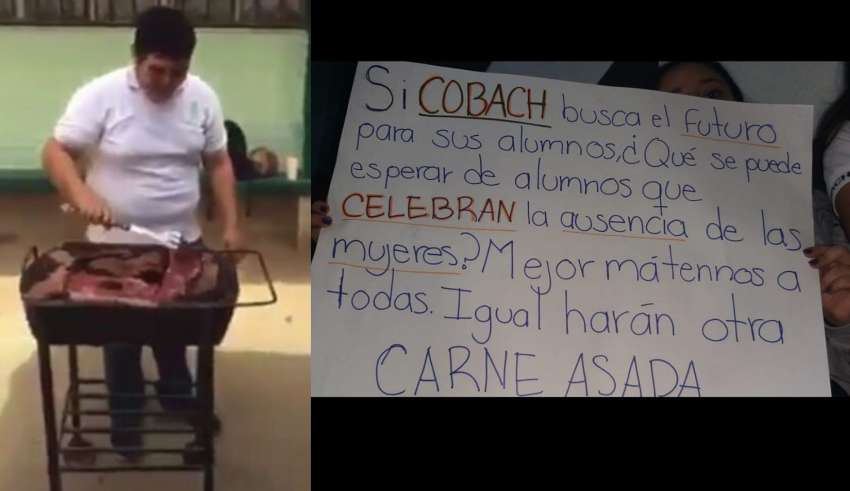 Si COBACH busca el futuro
para sus alumnos,¿Qué se puede
esperar de alumnos que
CELEBRAN la ausencia de las
mujeres? Mejor mátennos a
todas. Igual harán otra
CARNE ASADA